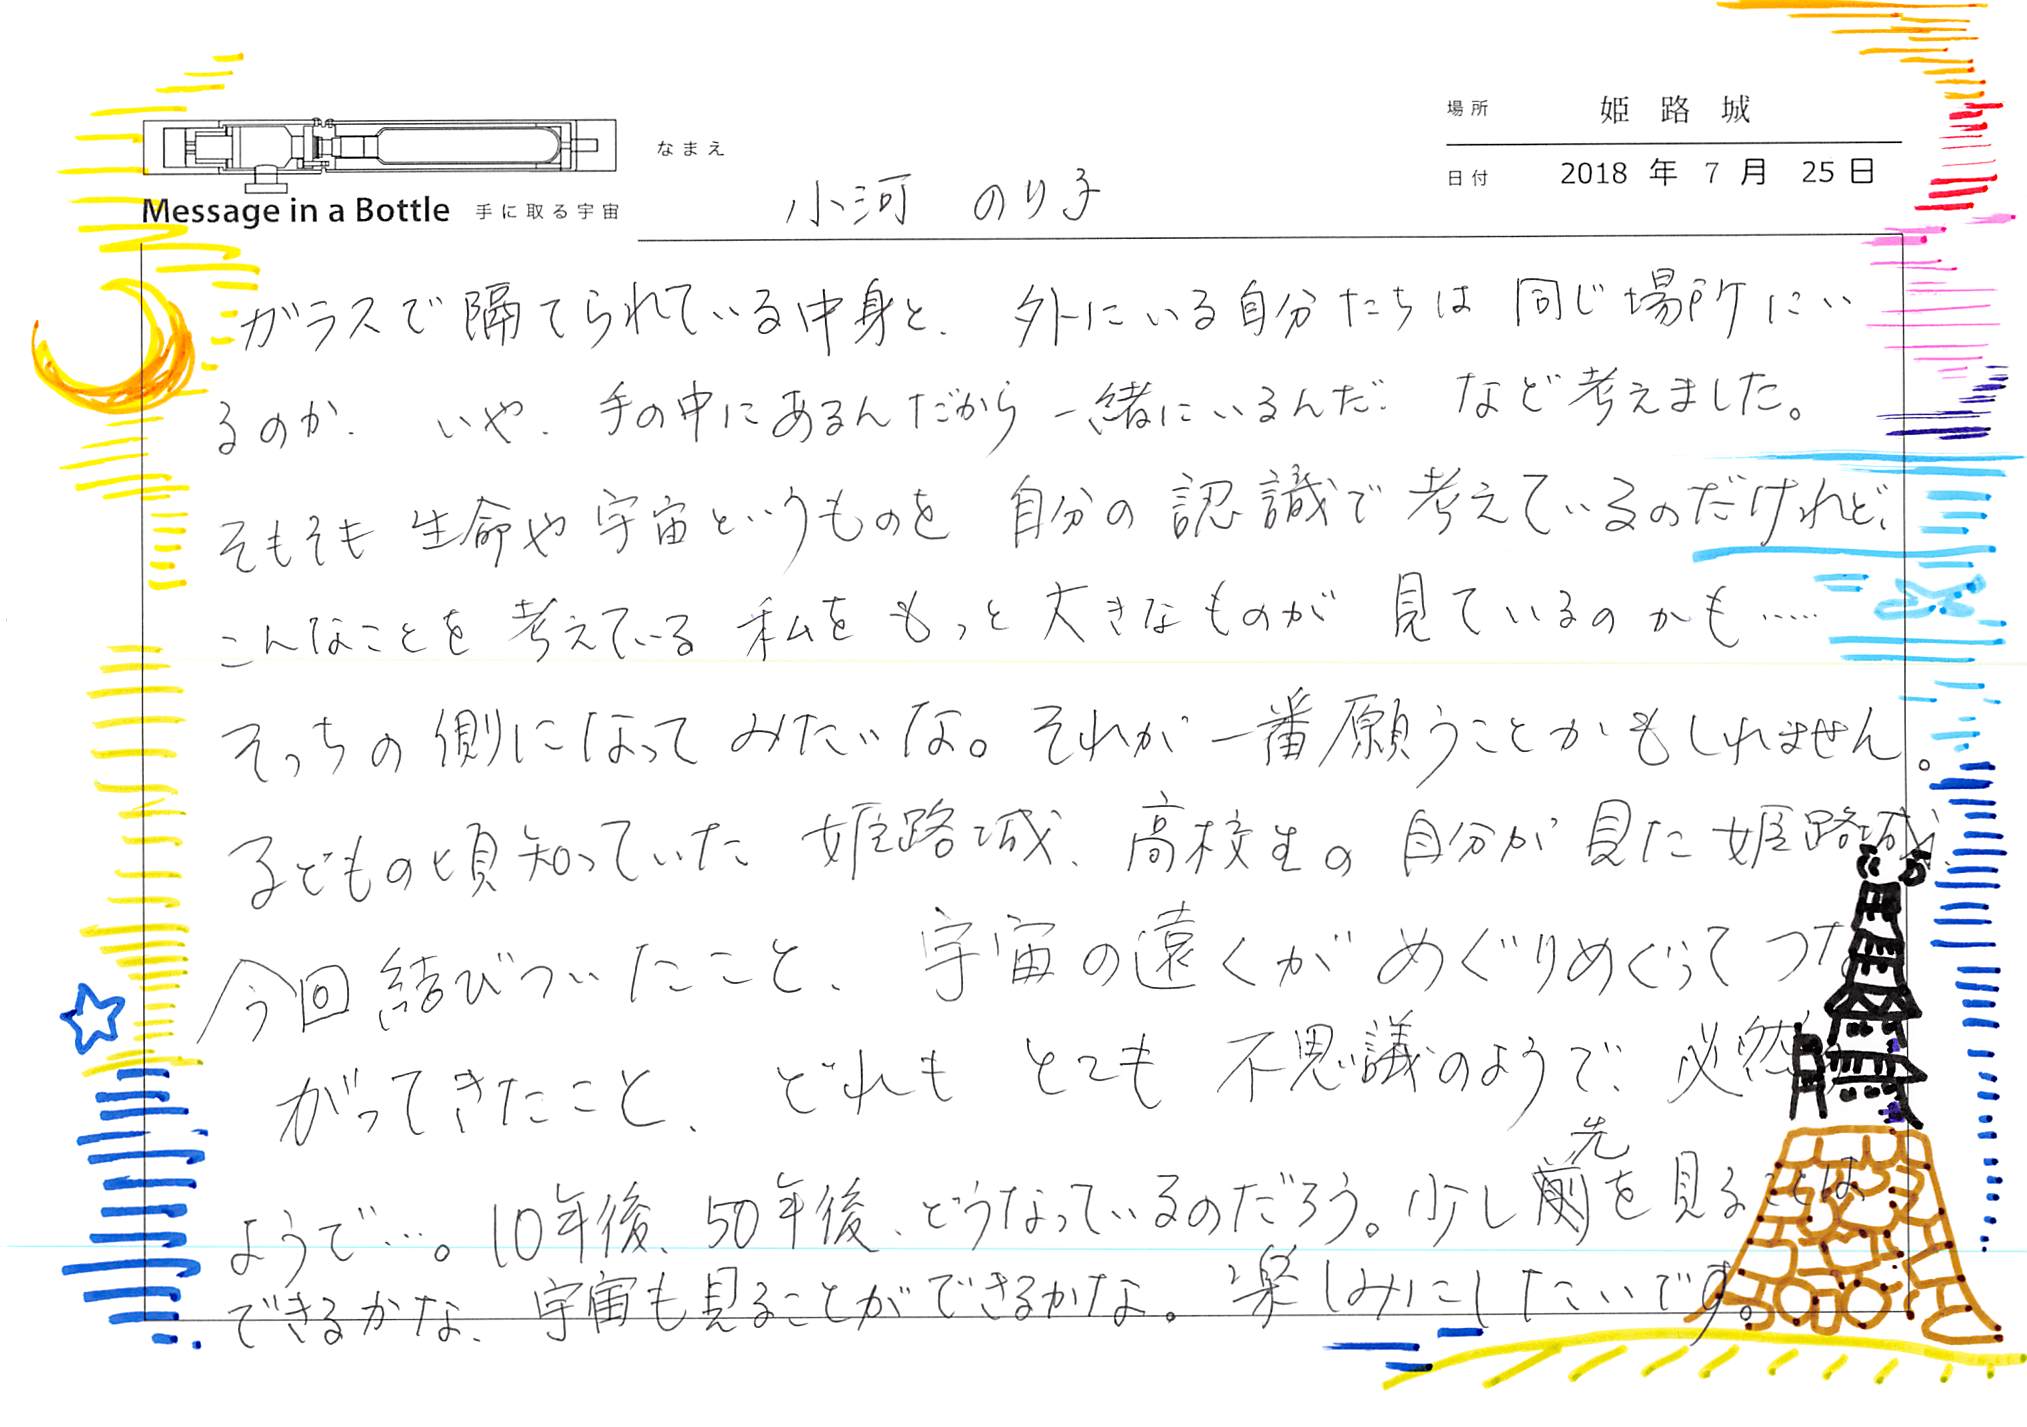 場所 姫路城
なまえ
日付 2018 年 7 月 25 日
小河 のり子
Message in a Bottle 手に取る宇宙
ガラスで隔てられている中身と、外にいる自分たちは同じ場所にい
るのか、いや、手の中にあるんだから一緒にいるんだ、など考えました。
そもそも生命や宇宙というものを自分の認識で考えているのだけれど、
こんなことを考えている私をもっと大きなものが見ているのかも……
そっちの側になってみたいな。それが一番願うことかもしれません。
子どもの頃知っていた姫路城、高校生の自分が見た姫路城、
今回結びついたこと、宇宙の遠くがめぐりめぐってつな
がってきたこと、どれもとても不思議のようで、必然の
先
ようで…。10年後、50年後、どうなっているのだろう。少しを見ることは
できるかな、宇宙も見ることができるかな。楽しみにしたいです。